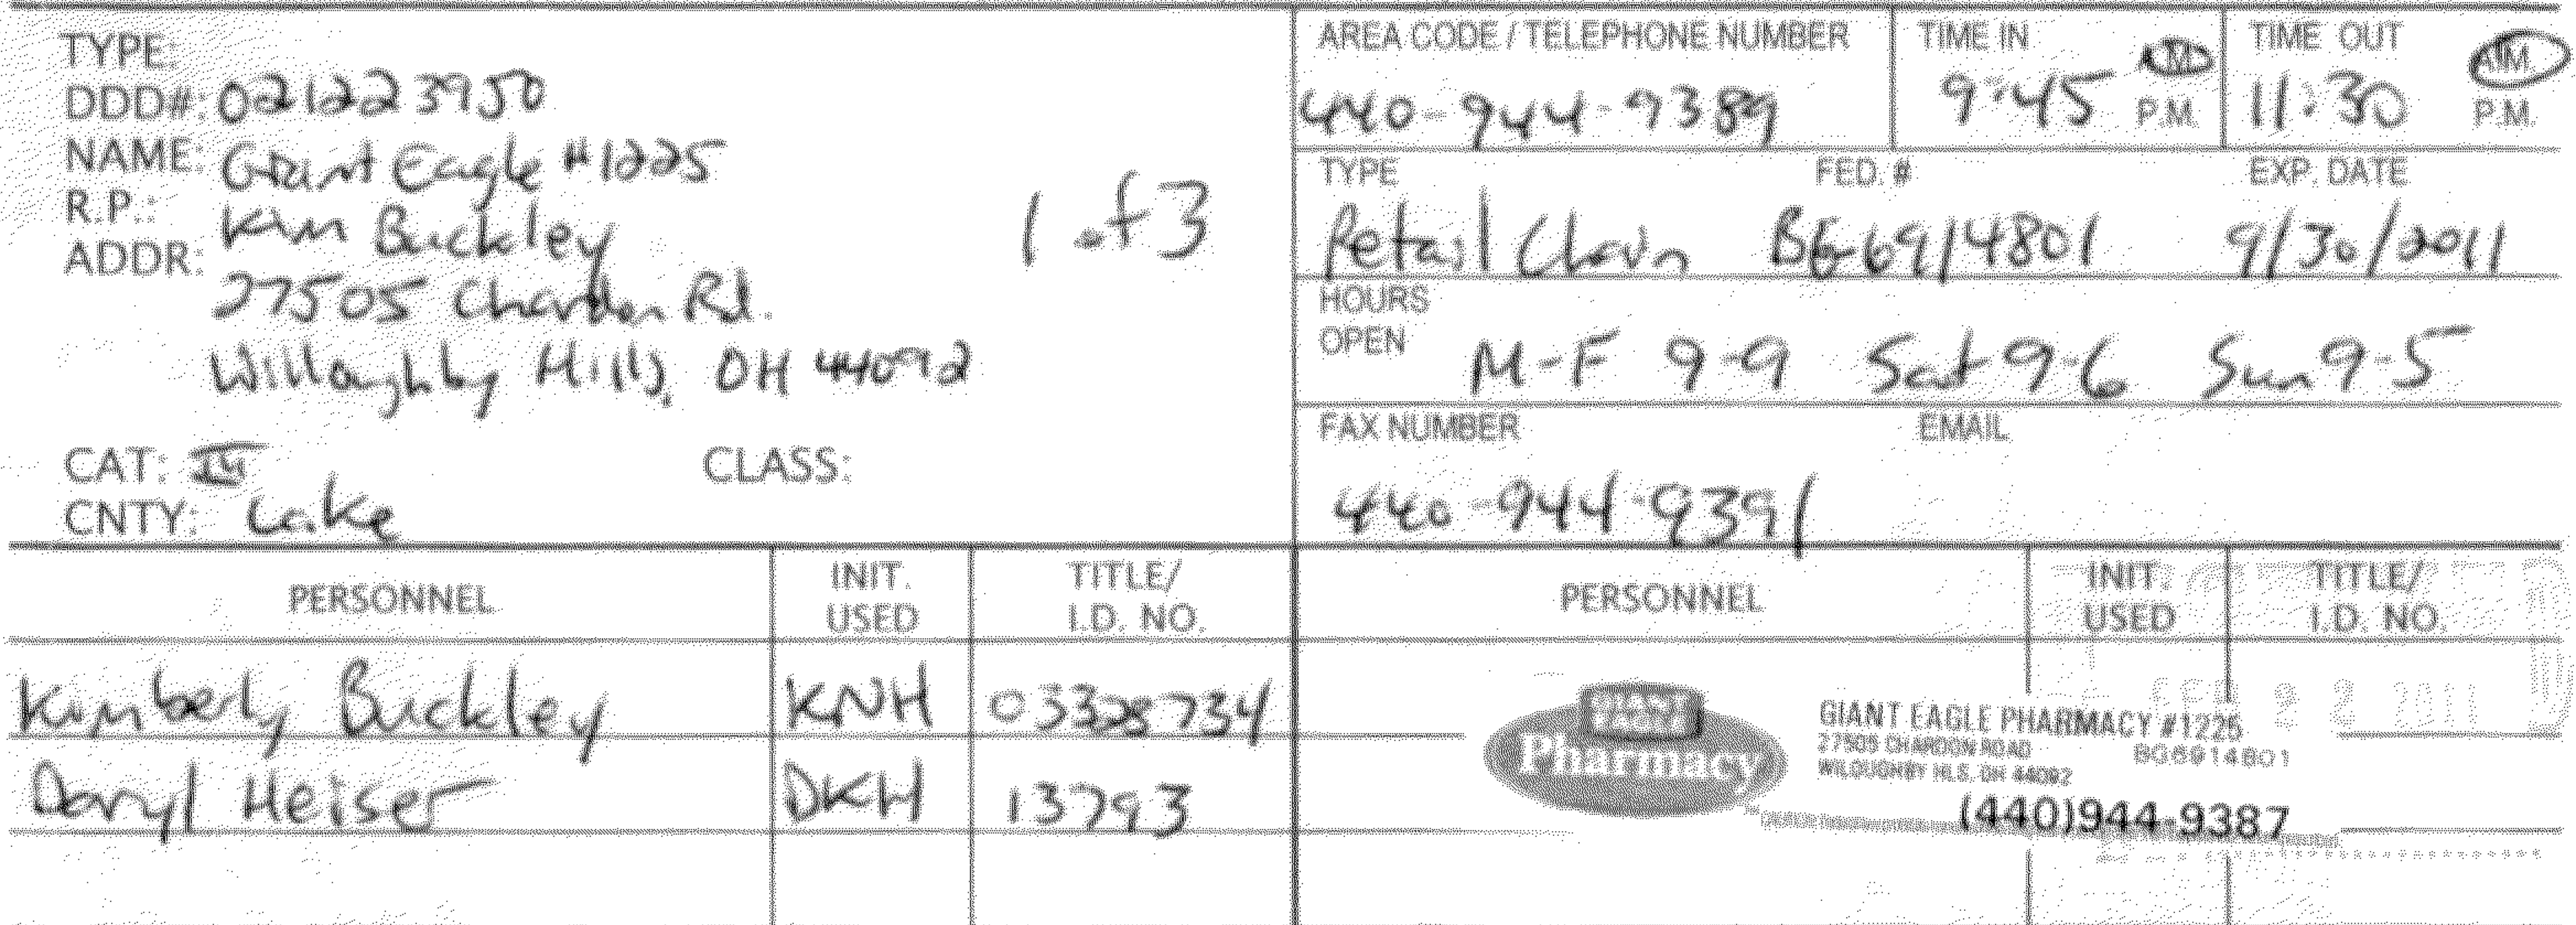 TYPE:
DDD#: 021223950
NAME: Giant Eagle #1225
R.P.: Kim Buckley
ADDR: 27505 Chardon Rd.
Willoughby Hills, OH 44092
1 of 3
CAT: III
CLASS:
CNTY: Lake
AREA CODE / TELEPHONE NUMBER
440-944-9389
TIME IN
9:45 A.M. P.M.
TIME OUT
11:30 A.M. P.M.
TYPE FED. # EXP. DATE
Retail Chain BG6914801 9/30/2011
HOURS
OPEN M-F 9-9 Sat 9-6 Sun 9-5
FAX NUMBER EMAIL
440-944-9391
PERSONNEL INIT. USED TITLE/ I.D. NO.
Kimberly Buckley KNH 03328734
Daryl Heiser DKH 13793
PERSONNEL INIT. USED TITLE/ I.D. NO.
2 2 2011
Pharmacy
GIANT EAGLE PHARMACY #1225
27505 CHARDON ROAD BG6914801
WILOUGHBY HLS, OH 44092
(440)944-9387